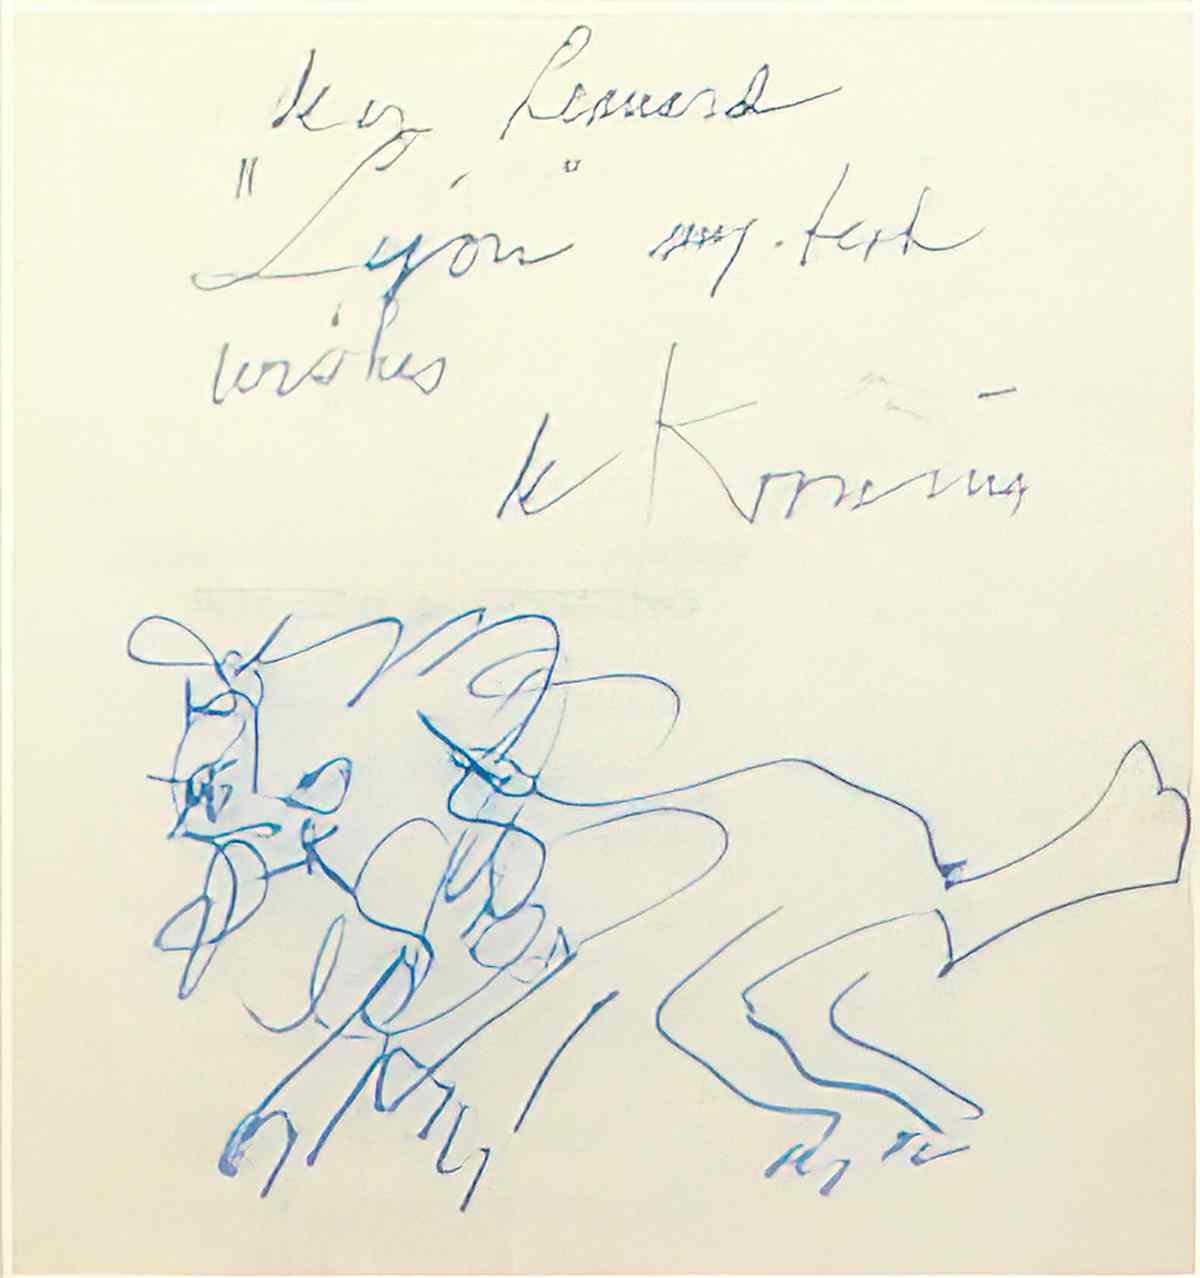 dear Leonard
"Lyon" my best
wishes
de Kooning